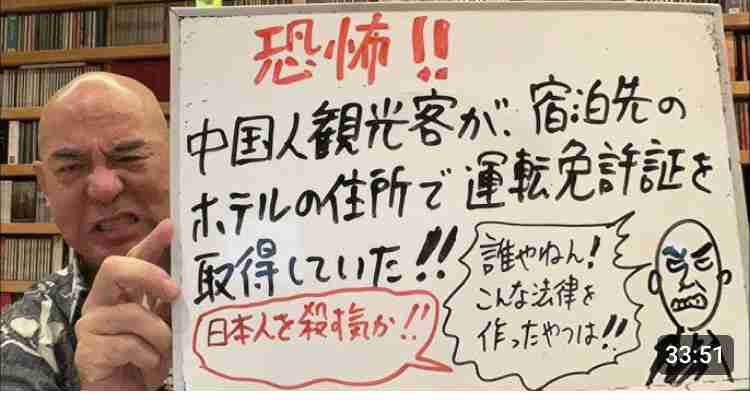 恐怖!!
中国人観光客が、宿泊先の
ホテルの住所で運転免許証を
取得していた!!
日本人を殺す気か!!
誰やねん!
こんな法律を
作ったやつは!!
33:51